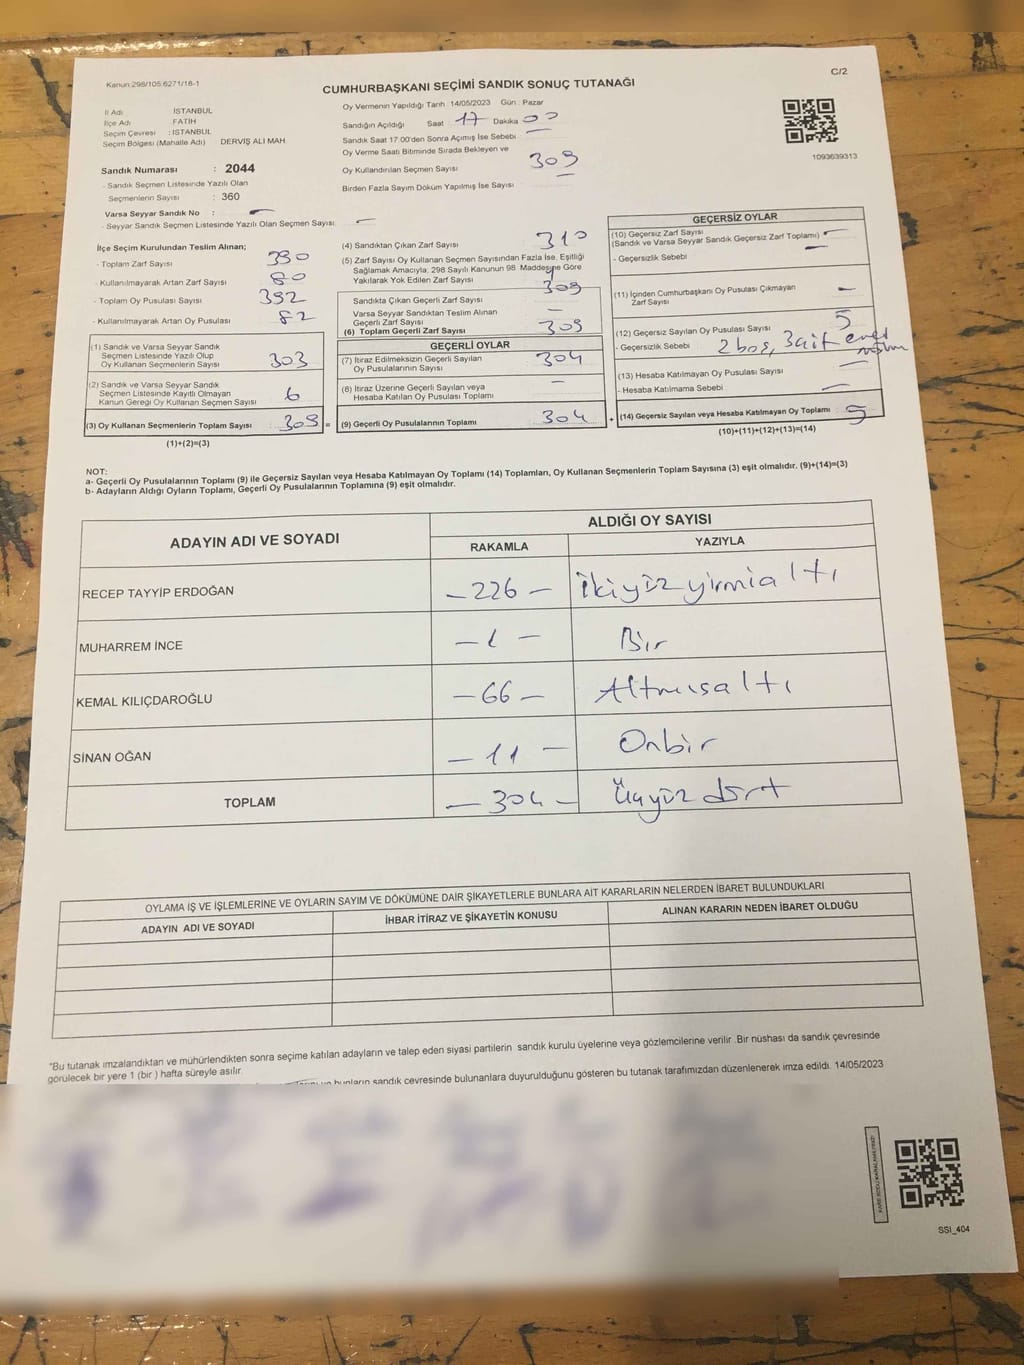 Kanun:298/105:6271/18-1
CUMHURBAŞKANI SEÇİMİ SANDIK SONUÇ TUTANAĞI
C/2
İl Adı : İSTANBUL
İlçe Adı : FATİH
Seçim Çevresi : İSTANBUL
Seçim Bölgesi (Mahalle Adı) DERVİŞ ALİ MAH
Sandık Numarası : 2044
- Sandık Seçmen Listesinde Yazılı Olan
Seçmenlerin Sayısı : 360
Varsa Seyyar Sandık No : -
- Seyyar Sandık Seçmen Listesinde Yazılı Olan Seçmen Sayısı: -
Oy Vermenin Yapıldığı Tarih 14/05/2023 Gün : Pazar
Sandığın Açıldığı Saat 17 Dakika 00
Sandık Saat 17.00'den Sonra Açımış İse Sebebi -
Oy Verme Saati Bitiminde Sırada Bekleyen ve
Oy Kullandırılan Seçmen Sayısı 309
Birden Fazla Sayım Döküm Yapılmış İse Sayısı -
1093639313
İlçe Seçim Kurulundan Teslim Alınan;
- Toplam Zarf Sayısı 390
- Kullanılmayarak Artan Zarf Sayısı 80
- Toplam Oy Pusulası Sayısı 392
- Kullanılmayarak Artan Oy Pusulası 82
(1) Sandık ve Varsa Seyyar Sandık
Seçmen Listesinde Yazılı Olup
Oy Kullanan Seçmenlerin Sayısı 303
(2) Sandık ve Varsa Seyyar Sandık
Seçmen Listesinde Kayıtlı Olmayan
Kanun Gereği Oy Kullanan Seçmen Sayısı 6
(3) Oy Kullanan Seçmenlerin Toplam Sayısı 309 =
(1)+(2)=(3)
(4) Sandıktan Çıkan Zarf Sayısı 310
(5) Zarf Sayısı Oy Kullanan Seçmen Sayısından Fazla İse, Eşitliği
Sağlamak Amacıyla, 298 Sayılı Kanunun 98 Maddesine Göre
Yakılarak Yok Edilen Zarf Sayısı 1
Sandıkta Çıkan Geçerli Zarf Sayısı 309
Varsa Seyyar Sandıktan Teslim Alınan
Geçerli Zarf Sayısı -
(6) Toplam Geçerli Zarf Sayısı 309
GEÇERLİ OYLAR
(7) İtiraz Edilmeksizin Geçerli Sayılan
Oy Pusulalarının Sayısı 304
(8) İtiraz Üzerine Geçerli Sayılan veya
Hesaba Katılan Oy Pusulası Toplamı -
(9) Geçerli Oy Pusulalarının Toplamı 304 +
GEÇERSİZ OYLAR
(10) Geçersiz Zarf Sayısı -
(Sandık ve Varsa Seyyar Sandık Geçersiz Zarf Toplamı)
- Geçersizlik Sebebi -
(11) İçinden Cumhurbaşkanı Oy Pusulası Çıkmayan
Zarf Sayısı -
(12) Geçersiz Sayılan Oy Pusulası Sayısı 5
- Geçersizlik Sebebi 2 boş, 3 ait
(13) Hesaba Katılmayan Oy Pusulası Sayısı -
- Hesaba Katılmama Sebebi -
(14) Geçersiz Sayılan veya Hesaba Katılmayan Oy Toplamı : 5
(10)+(11)+(12)+(13)=(14)
NOT:
a- Geçerli Oy Pusulalarının Toplamı (9) ile Geçersiz Sayılan veya Hesaba Katılmayan Oy Toplamı (14) Toplamları, Oy Kullanan Seçmenlerin Toplam Sayısına (3) eşit olmalıdır. (9)+(14)=(3)
b- Adayların Aldığı Oyların Toplamı, Geçerli Oy Pusulalarının Toplamına (9) eşit olmalıdır.
ADAYIN ADI VE SOYADI ALDIĞI OY SAYISI
RAKAMLA YAZIYLA
RECEP TAYYİP ERDOĞAN - 226 - İkiyüz yirmialtı
MUHARREM İNCE - 1 - Bir
KEMAL KILIÇDAROĞLU - 66 - Altmışaltı
SİNAN OĞAN - 11 - Onbir
TOPLAM - 304 - Üçyüz dört
OYLAMA İŞ VE İŞLEMLERİNE VE OYLARIN SAYIM VE DÖKÜMÜNE DAİR ŞİKAYETLERLE BUNLARA AİT KARARLARIN NELERDEN İBARET BULUNDUKLARI
ADAYIN ADI VE SOYADI İHBAR İTİRAZ VE ŞİKAYETİN KONUSU ALINAN KARARIN NEDEN İBARET OLDUĞU
*Bu tutanak imzalandıktan ve mühürlendikten sonra seçime katılan adayların ve talep eden siyasi partilerin sandık kurulu üyelerine veya gözlemcilerine verilir. Bir nüshası da sandık çevresinde
görülecek bir yere 1 (bir ) hafta süreyle asılır.
bunların sandık çevresinde bulunanlara duyurulduğunu gösteren bu tutanak tarafımızdan düzenlenerek imza edildi. 14/05/2023
SSI_404